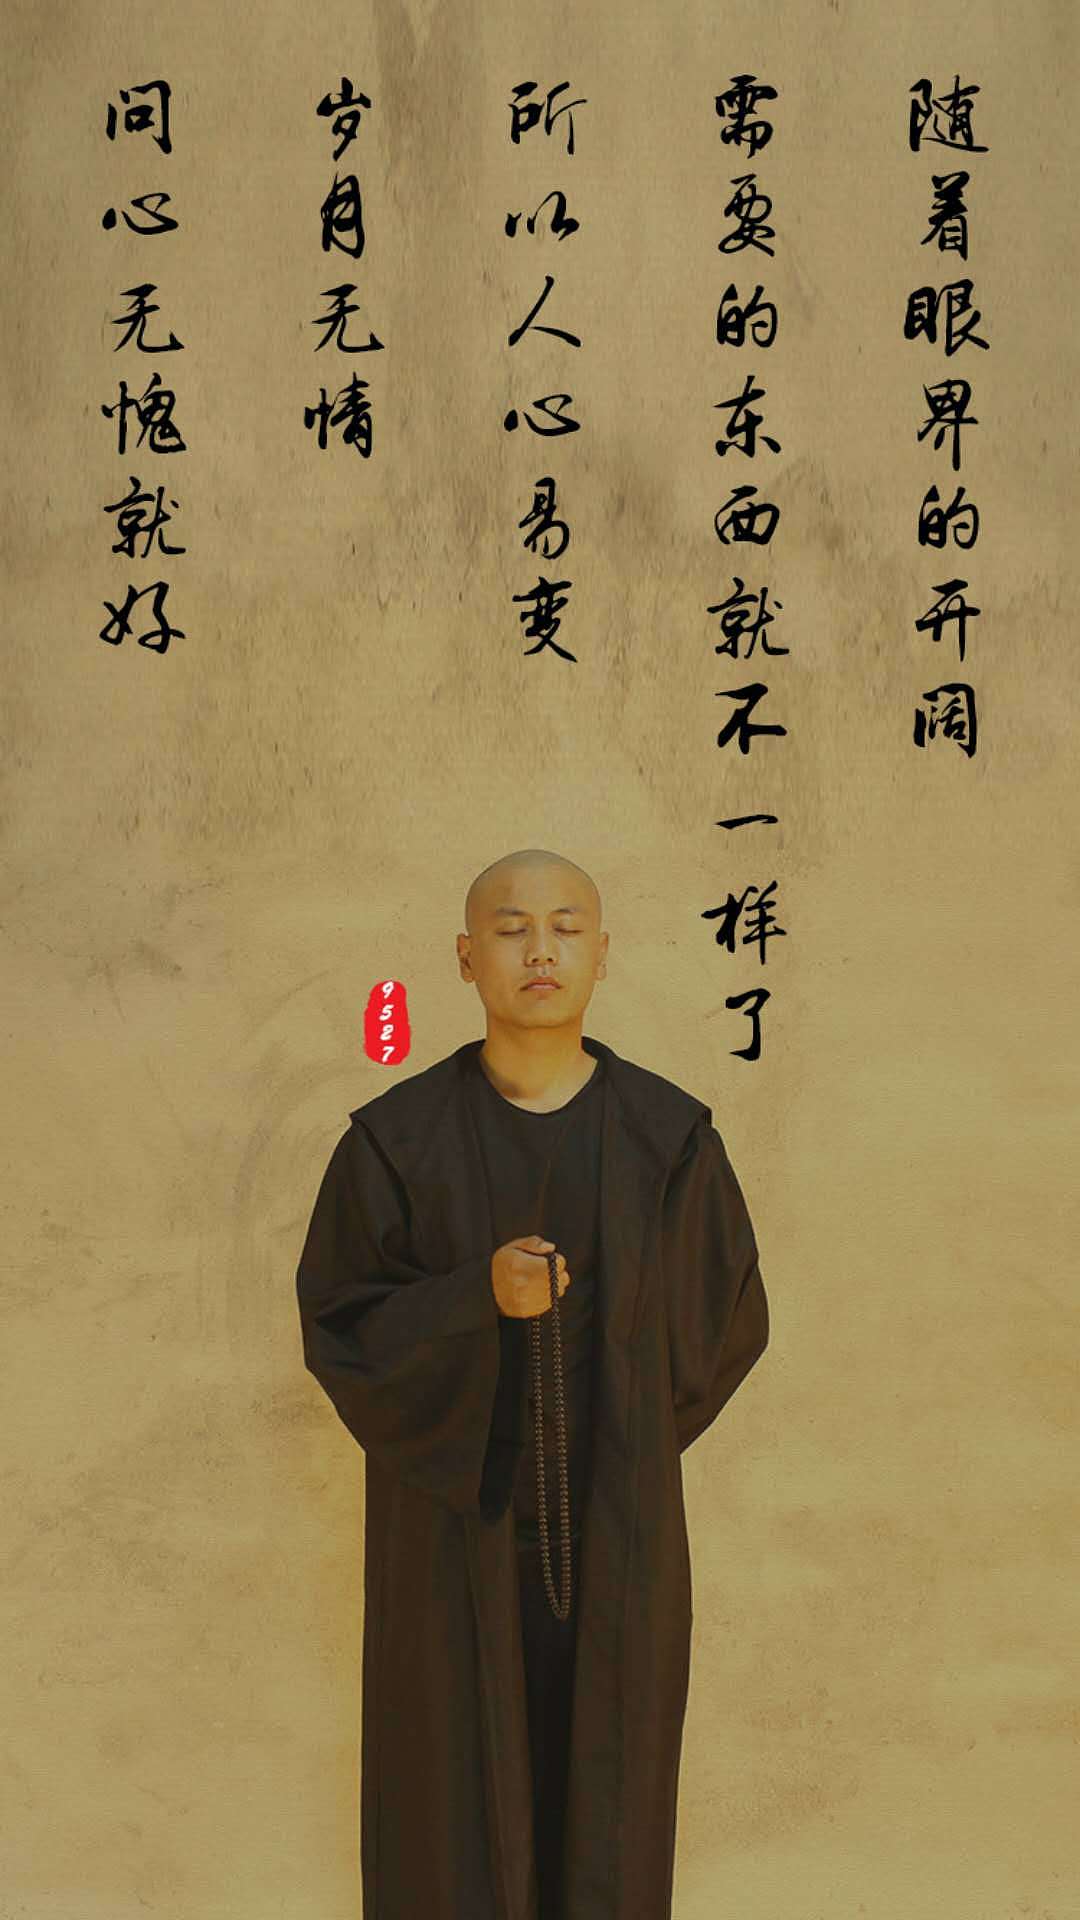 随着眼界的开阔
需要的东西就不一样了
所以人心易变
岁月无情
问心无愧就好
9527